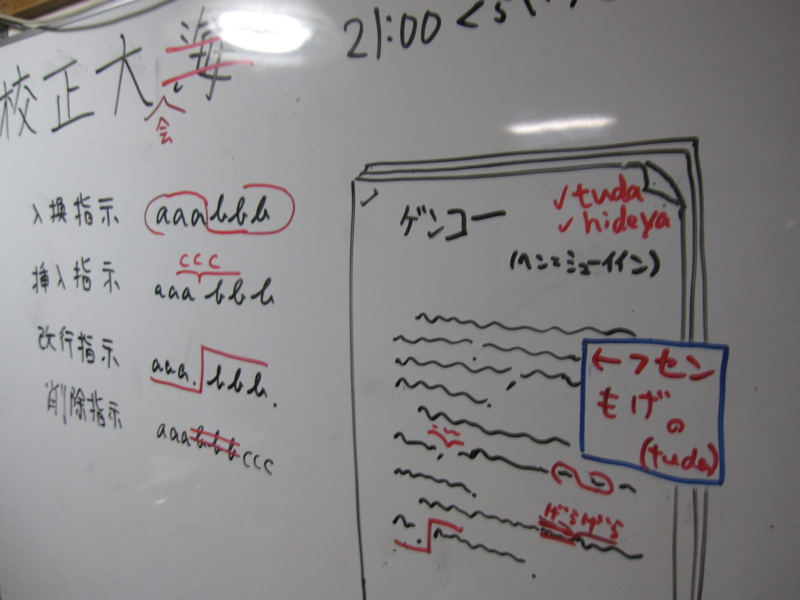 校正大海
会
21:00
入換指示 aaabbb
ccc
挿入指示 aaa bbb
改行指示 aaa. bbb.
削除指示 aaabbbccc
ゲンコー
✓tuda
✓hideya
(ヘンシューイイン)
←フセン
もげ
の
(tuda)